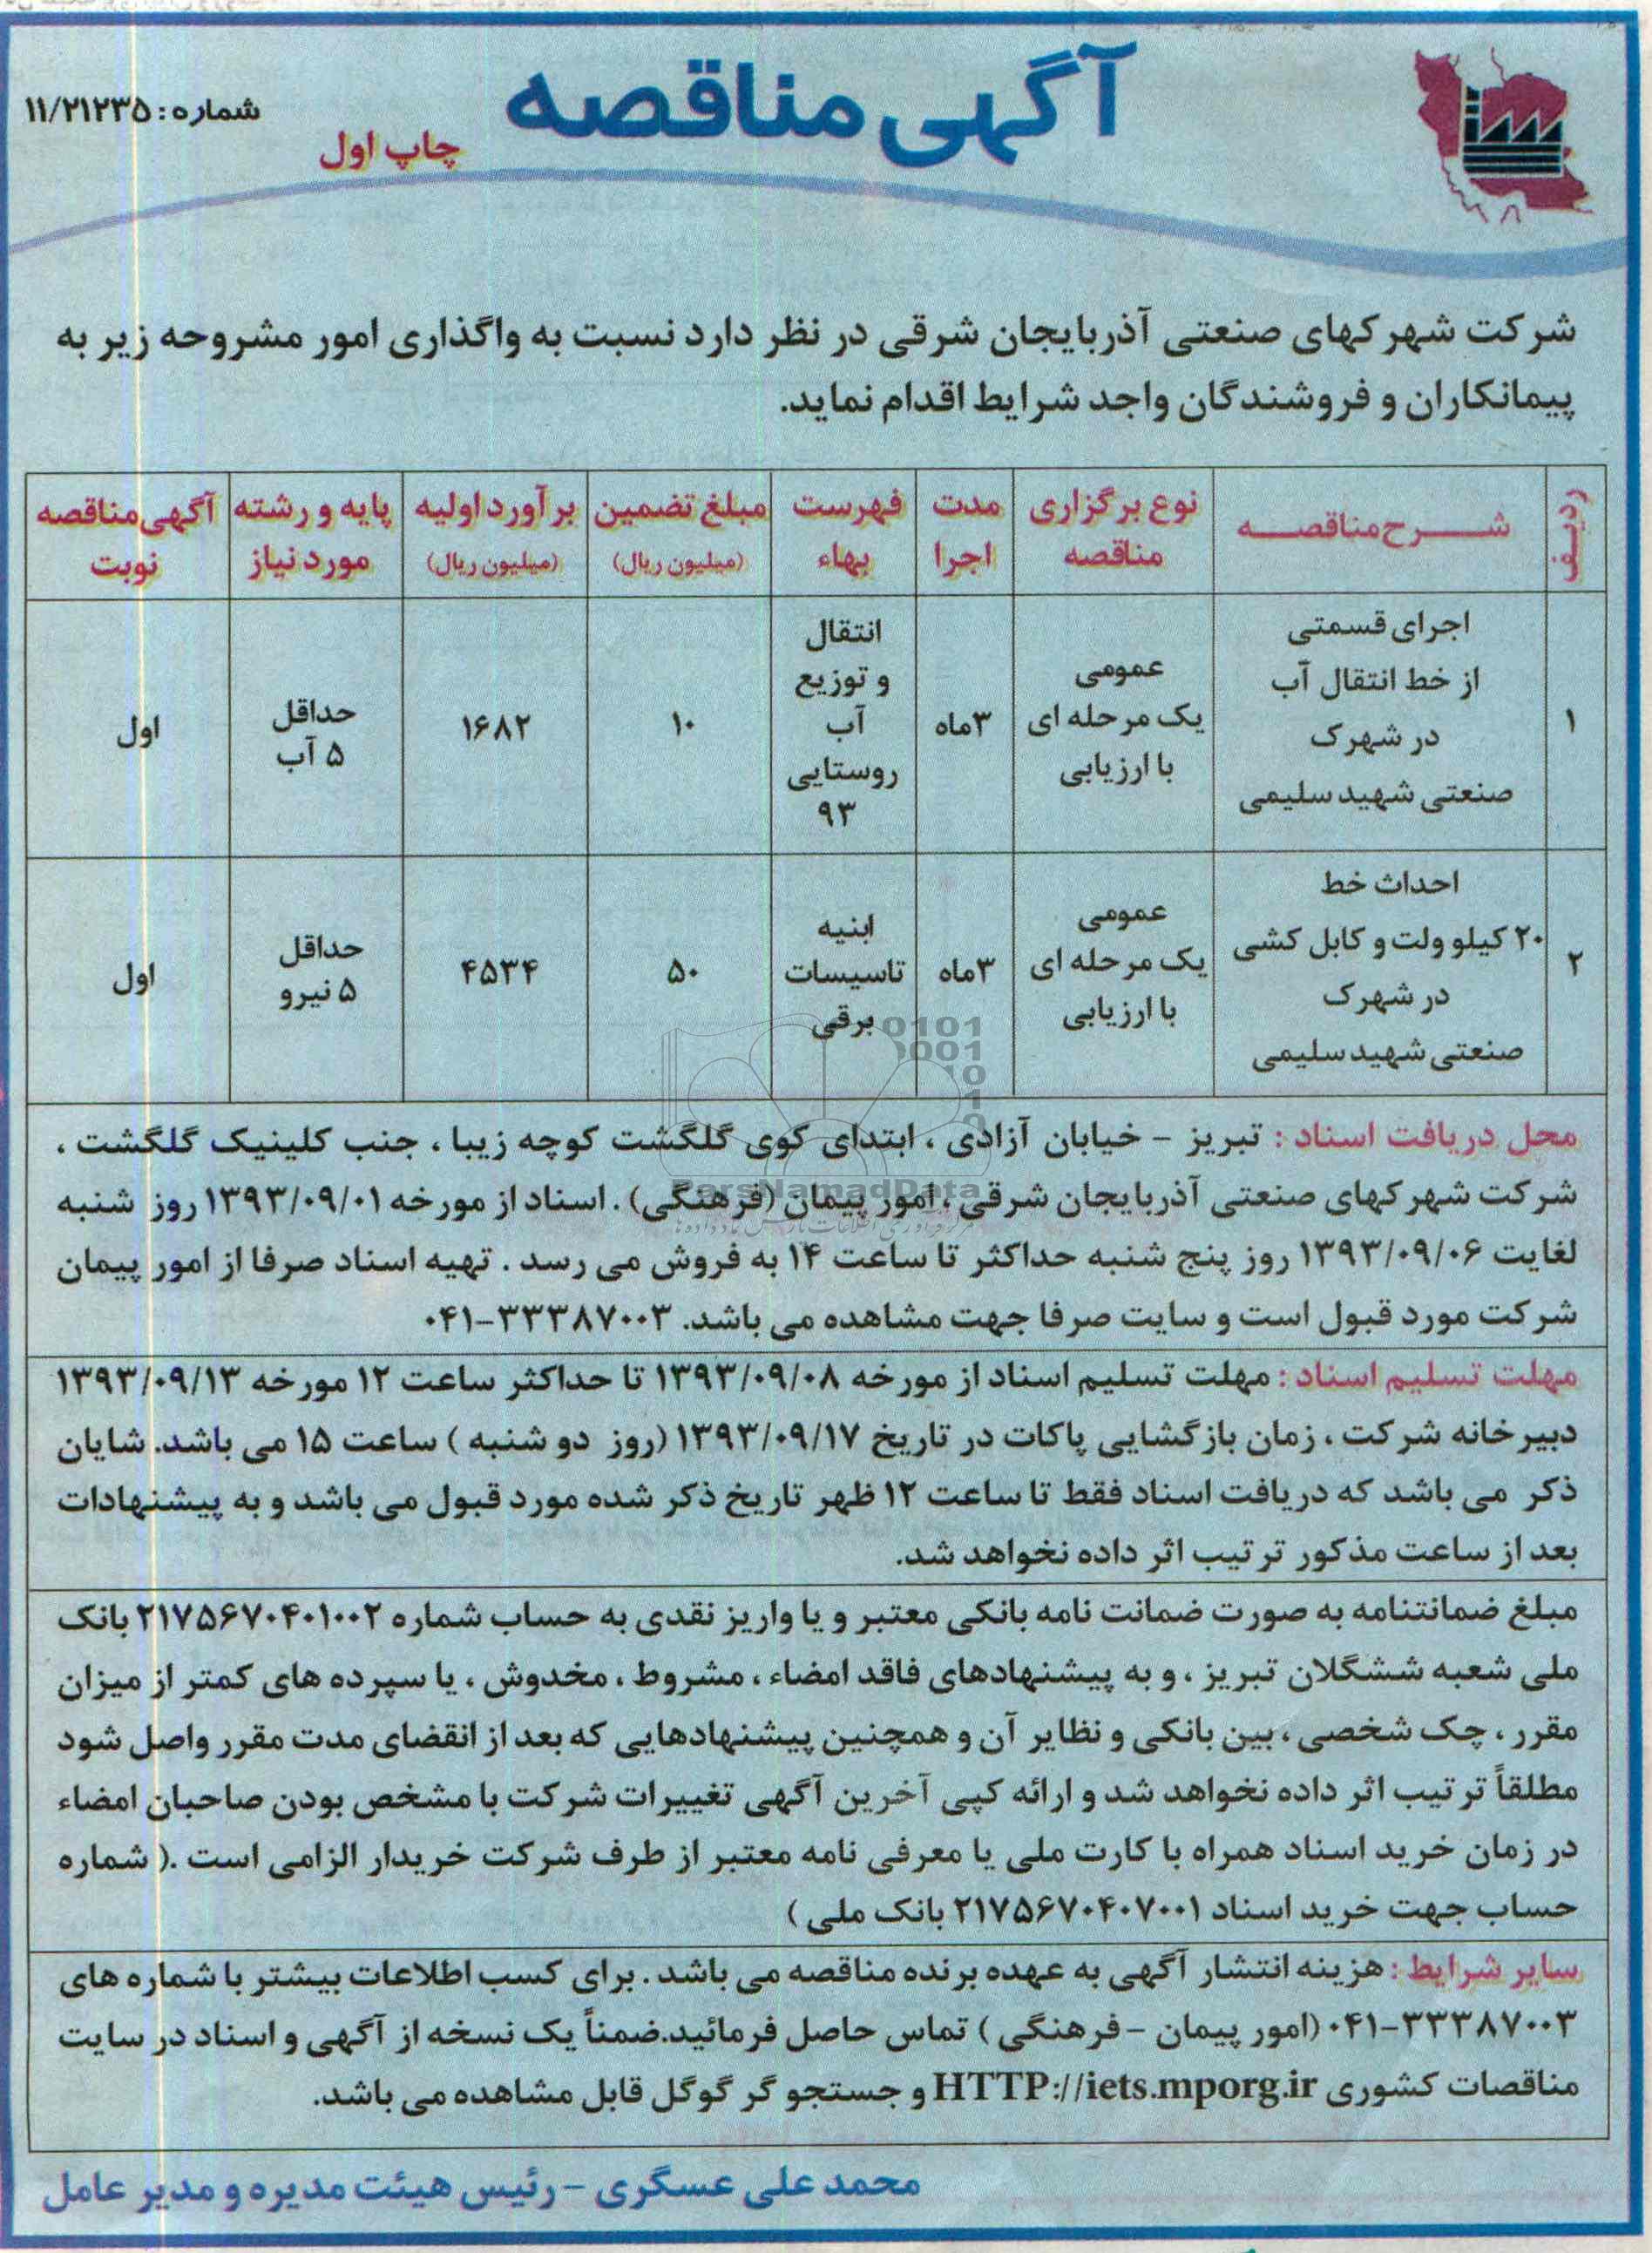 آگهی مناقصه
شماره: ۱۱/۲۱۲۳۵
چاپ اول
شرکت شهرکهای صنعتی آذربایجان شرقی در نظر دارد نسبت به واگذاری امور مشروحه زیر به
پیمانکاران و فروشندگان واجد شرایط اقدام نماید.
ردیف | شرح مناقصه | نوع برگزاری مناقصه | مدت اجرا | فهرست بهاء | مبلغ تضمین (میلیون ریال) | برآورد اولیه (میلیون ریال) | پایه و رشته مورد نیاز | آگهی مناقصه نوبت
۱ | اجرای قسمتی از خط انتقال آب در شهرک صنعتی شهید سلیمی | عمومی یک مرحله ای با ارزیابی | ۳ماه | انتقال و توزیع آب روستایی ۹۳ | ۱۰ | ۱۶۸۲ | حداقل ۵ آب | اول
۲ | احداث خط ۲۰ کیلو ولت و کابل کشی در شهرک صنعتی شهید سلیمی | عمومی یک مرحله ای با ارزیابی | ۳ماه | ابنیه تاسیسات برقی | ۵۰ | ۴۵۳۴ | حداقل ۵ نیرو | اول
محل دریافت اسناد : تبریز – خیابان آزادی ، ابتدای کوی گلگشت کوچه زیبا ، جنب کلینیک گلگشت ،
شرکت شهرکهای صنعتی آذربایجان شرقی ، امور پیمان (فرهنگی) . اسناد از مورخه ۱۳۹۳/۰۹/۰۱ روز شنبه
لغایت ۱۳۹۳/۰۹/۰۶ روز پنج شنبه حداکثر تا ساعت ۱۴ به فروش می رسد . تهیه اسناد صرفا از امور پیمان
شرکت مورد قبول است و سایت صرفا جهت مشاهده می باشد. ۳۳۳۸۷۰۰۳–۰۴۱
مهلت تسلیم اسناد : مهلت تسلیم اسناد از مورخه ۱۳۹۳/۰۹/۰۸ تا حداکثر ساعت ۱۲ مورخه ۱۳۹۳/۰۹/۱۳
دبیرخانه شرکت ، زمان بازگشایی پاکات در تاریخ ۱۳۹۳/۰۹/۱۷ (روز دو شنبه ) ساعت ۱۵ می باشد. شایان
ذکر می باشد که دریافت اسناد فقط تا ساعت ۱۲ ظهر تاریخ ذکر شده مورد قبول می باشد و به پیشنهادات
بعد از ساعت مذکور ترتیب اثر داده نخواهد شد.
مبلغ ضمانتنامه به صورت ضمانت نامه بانکی معتبر و یا واریز نقدی به حساب شماره ۲۱۷۵۶۷۰۴۰۱۰۰۲ بانک
ملی شعبه ششگلان تبریز ، و به پیشنهادهای فاقد امضاء ، مشروط ، مخدوش ، یا سپرده های کمتر از میزان
مقرر ، چک شخصی ، بین بانکی و نظایر آن و همچنین پیشنهادهایی که بعد از انقضای مدت مقرر واصل شود
مطلقاً ترتیب اثر داده نخواهد شد و ارائه کپی آخرین آگهی تغییرات شرکت با مشخص بودن صاحبان امضاء
در زمان خرید اسناد همراه با کارت ملی یا معرفی نامه معتبر از طرف شرکت خریدار الزامی است .( شماره
حساب جهت خرید اسناد ۲۱۷۵۶۷۰۴۰۷۰۰۱ بانک ملی )
سایر شرایط : هزینه انتشار آگهی به عهده برنده مناقصه می باشد . برای کسب اطلاعات بیشتر با شماره های
۳۳۳۸۷۰۰۳–۰۴۱ (امور پیمان – فرهنگی ) تماس حاصل فرمائید.ضمناً یک نسخه از آگهی و اسناد در سایت
مناقصات کشوری HTTP://iets.mporg.ir و جستجو گر گوگل قابل مشاهده می باشد.
محمد علی عسگری – رئیس هیئت مدیره و مدیر عامل
ParsNamadData